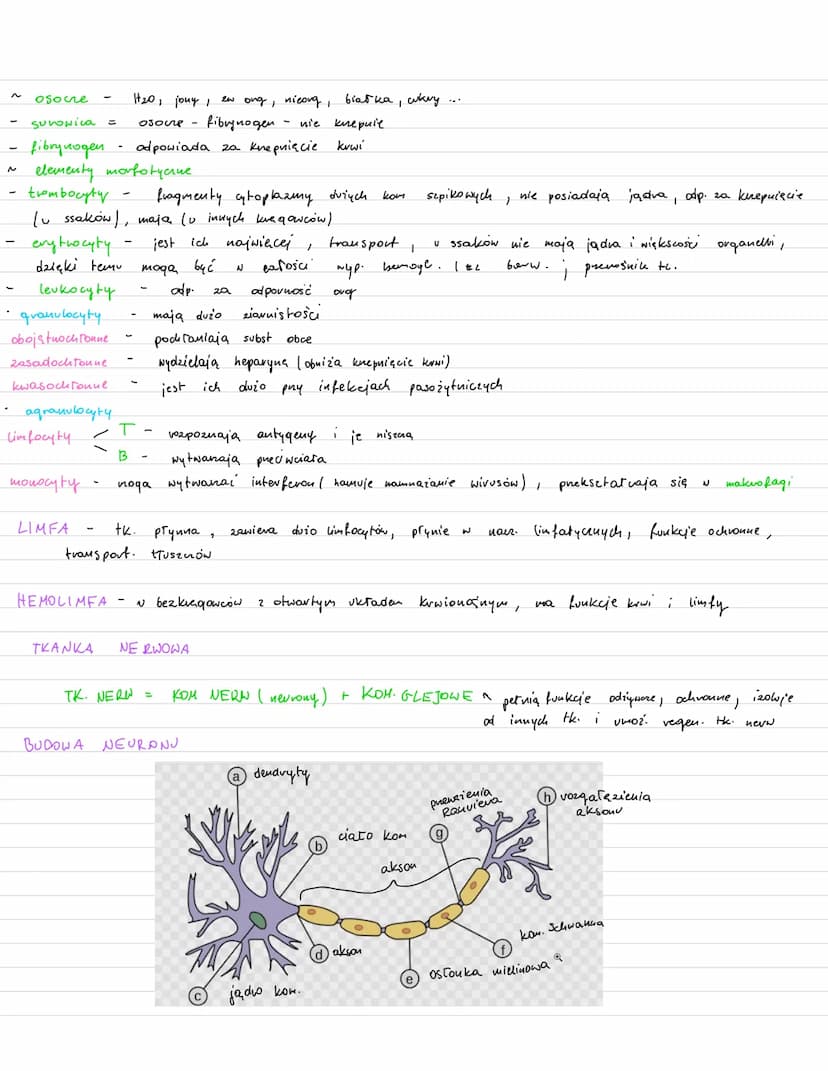 ~ osocze - H2O, jony, zw org, nieorg, białka, cukry ...
- surowica = osocze - fibrynogen - nie krzepnie
- fibrynogen - odpowiada za krzepnięcie krwi
~ elementy morfotyczne
- trombocyty - fragmenty cytoplazmy dużych kom szpikowych, nie posiadają jądra, odp. za krzepnięcie
(u ssaków), mają (u innych kręgowców)
- erytrocyty - jest ich najwięcej, transport, u ssaków nie mają jądra i większości organelli,
dzięki temu mogą być w całości wyp. hemogl. barw. ; przenośnik tl.
- leukocyty - odp. za odporność org
· granulocyty - mają dużo ziarnistości
obojętnochłonne - pochłaniają subst obce
zasadochłonne - wydzielają heparynę (obniża krzepnięcie krwi)
kwasochłonne - jest ich dużo przy infekcjach pasożytniczych
· agranulocyty
limfocyty < T - rozpoznają antygeny i je niszczą
B - wytwarzają przeciwciała
monocyty - mogą wytwarzać interferon (hamuje namnażanie wirusów), przekształcają się w makrofagi
LIMFA - tk. płynna, zawiera dużo limfocytów, płynie w nacz. limfatycznych, funkcje ochronne,
transport. tłuszczów
HEMOLIMFA - u bezkręgowców z otwartym układem krwionośnym, ma funkcje krwi i limfy
TKANKA NERWOWA
TK. NERW = KOM NERW (neurony) + KOM. GLEJOWE pełnią funkcje odżywcze, ochronne, izoluje
od innych tk. i umoż. regen. tk. nerw
BUDOWA NEURONU
a dendryty
przewężenia
Ranviera
h rozgałęzienia
aksonu
b ciało kom
g
akson
d akson
f kom. Schwanna
e osłonka mielinowa
c jądro kom.